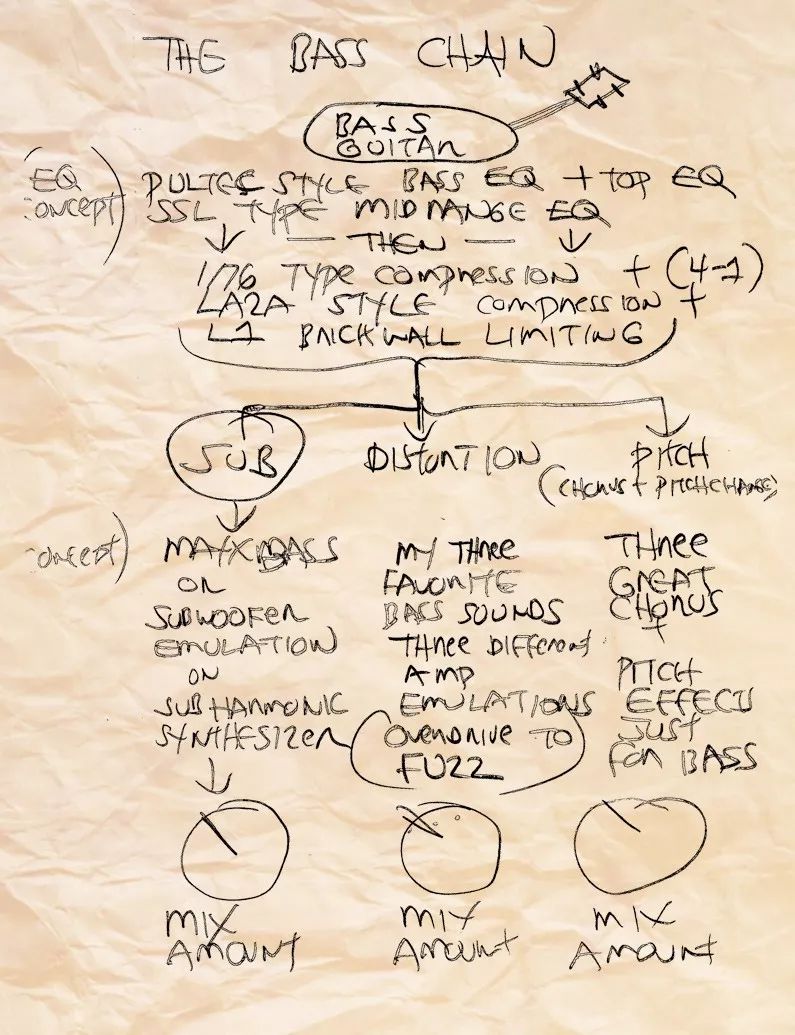 THE BASS CHAIN
BASS
GUITAR
(EQ
CONCEPT)
PULTEC STYLE BASS EQ + TOP EQ
SSL TYPE MIDRANGE EQ
— THEN —
1176 TYPE COMPRESSION + (4-1)
LA2A STYLE COMPRESSION +
L1 BRICKWALL LIMITING
SUB
DISTORTION
PITCH
(CHORUS + PITCHCHANGE)
CONCEPT)
MAXXBASS
OR
SUBWOOFER
EMULATION
OR
SUBHARMONIC
SYNTHESIZER
MY THREE
FAVORITE
BASS SOUNDS
THREE DIFFERENT
AMP
EMULATIONS
OVERDRIVE TO
FUZZ
THREE
GREAT
CHORUS
+
PITCH
EFFECTS
JUST
FOR BASS
MIX
AMOUNT
MIX
AMOUNT
MIX
AMOUNT